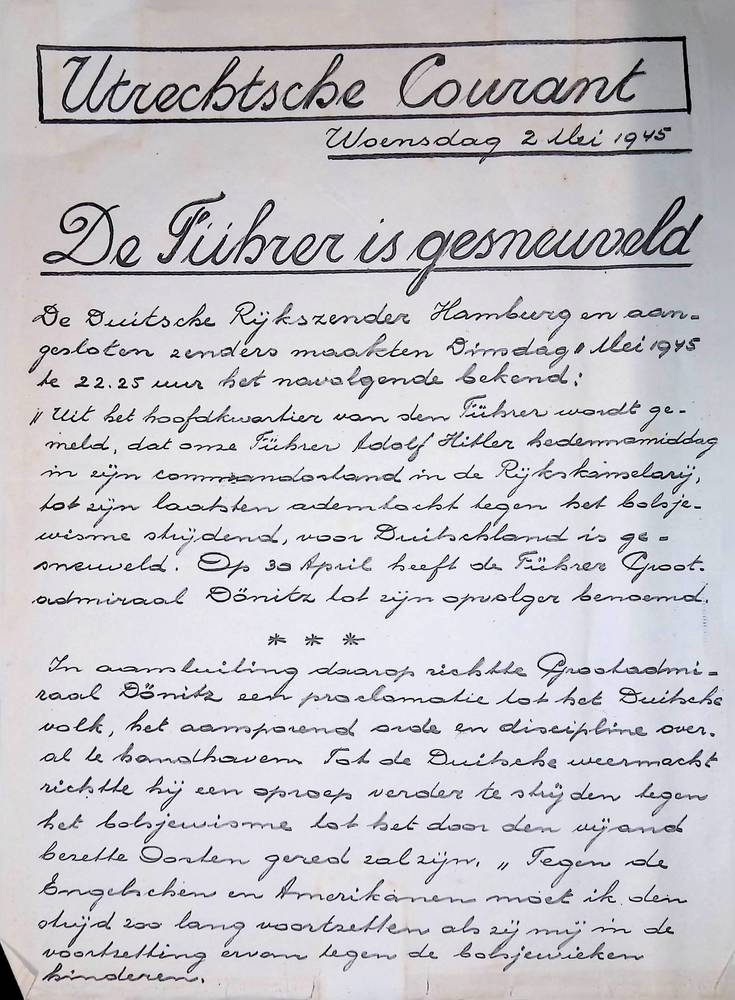 Utrechtsche Courant
Woensdag 2 Mei 1945
De Führer is gesneuveld
De Duitsche Rijkszender Hamburg en aan=
gesloten zenders maakten Dinsdag 1 Mei 1945
te 22.25 uur het navolgende bekend:
„Uit het hoofdkwartier van den Führer wordt ge-
meld, dat onze Führer Adolf Hitler hedennamiddag
in zijn commandostand in de Rijkskanselarij,
tot zijn laatsten ademtocht tegen het bolsje-
wisme strijdend, voor Duitschland is ge=
sneuveld. Op 30 April heeft de Führer Groot-
admiraal Dönitz tot zijn opvolger benoemd.
* * *
In aansluiting daarop richtte Grootadmi=
raal Dönitz een proclamatie tot het Duitsche
volk, het aansporend orde en discipline over-
al te handhaven. Tot de Duitsche weermacht
richtte hij een oproep verder te strijden tegen
het bolsjewisme tot het door den vijand
bezette Oosten gered zal zijn. „Tegen de
Engelschen en Amerikanen moet ik den
strijd zoo lang voortzetten als zij mij in de
voortzetting ervan tegen de bolsjewieken
hinderen.